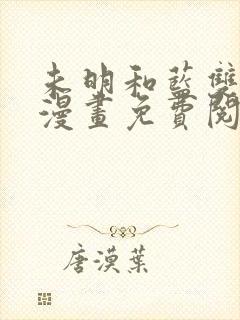 未明和藍雙
漫畫免費閱
唐漠葉